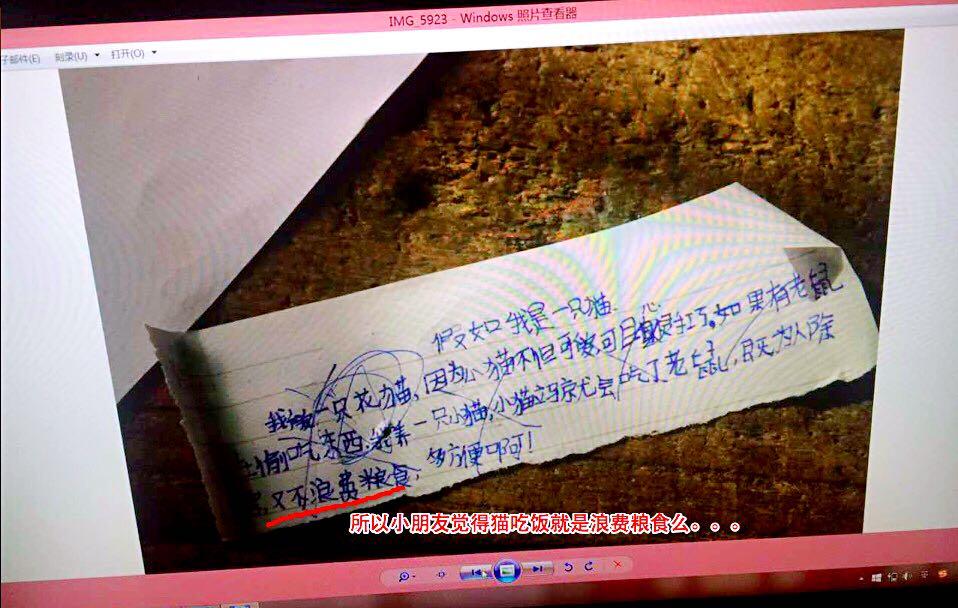 IMG_5923 - Windows 照片查看器
子邮件(E) 刻录(U) 打开(O)
假如我是一只猫
一只花猫,因为小猫不但可爱,可且心灵手巧。如果有老鼠
偷吃东西,我养一只小猫,小猫马京尤会吃了老鼠,既为人除
又不浪费粮食,多方便啊!
所以小朋友觉得猫吃饭就是浪费粮食么。。。